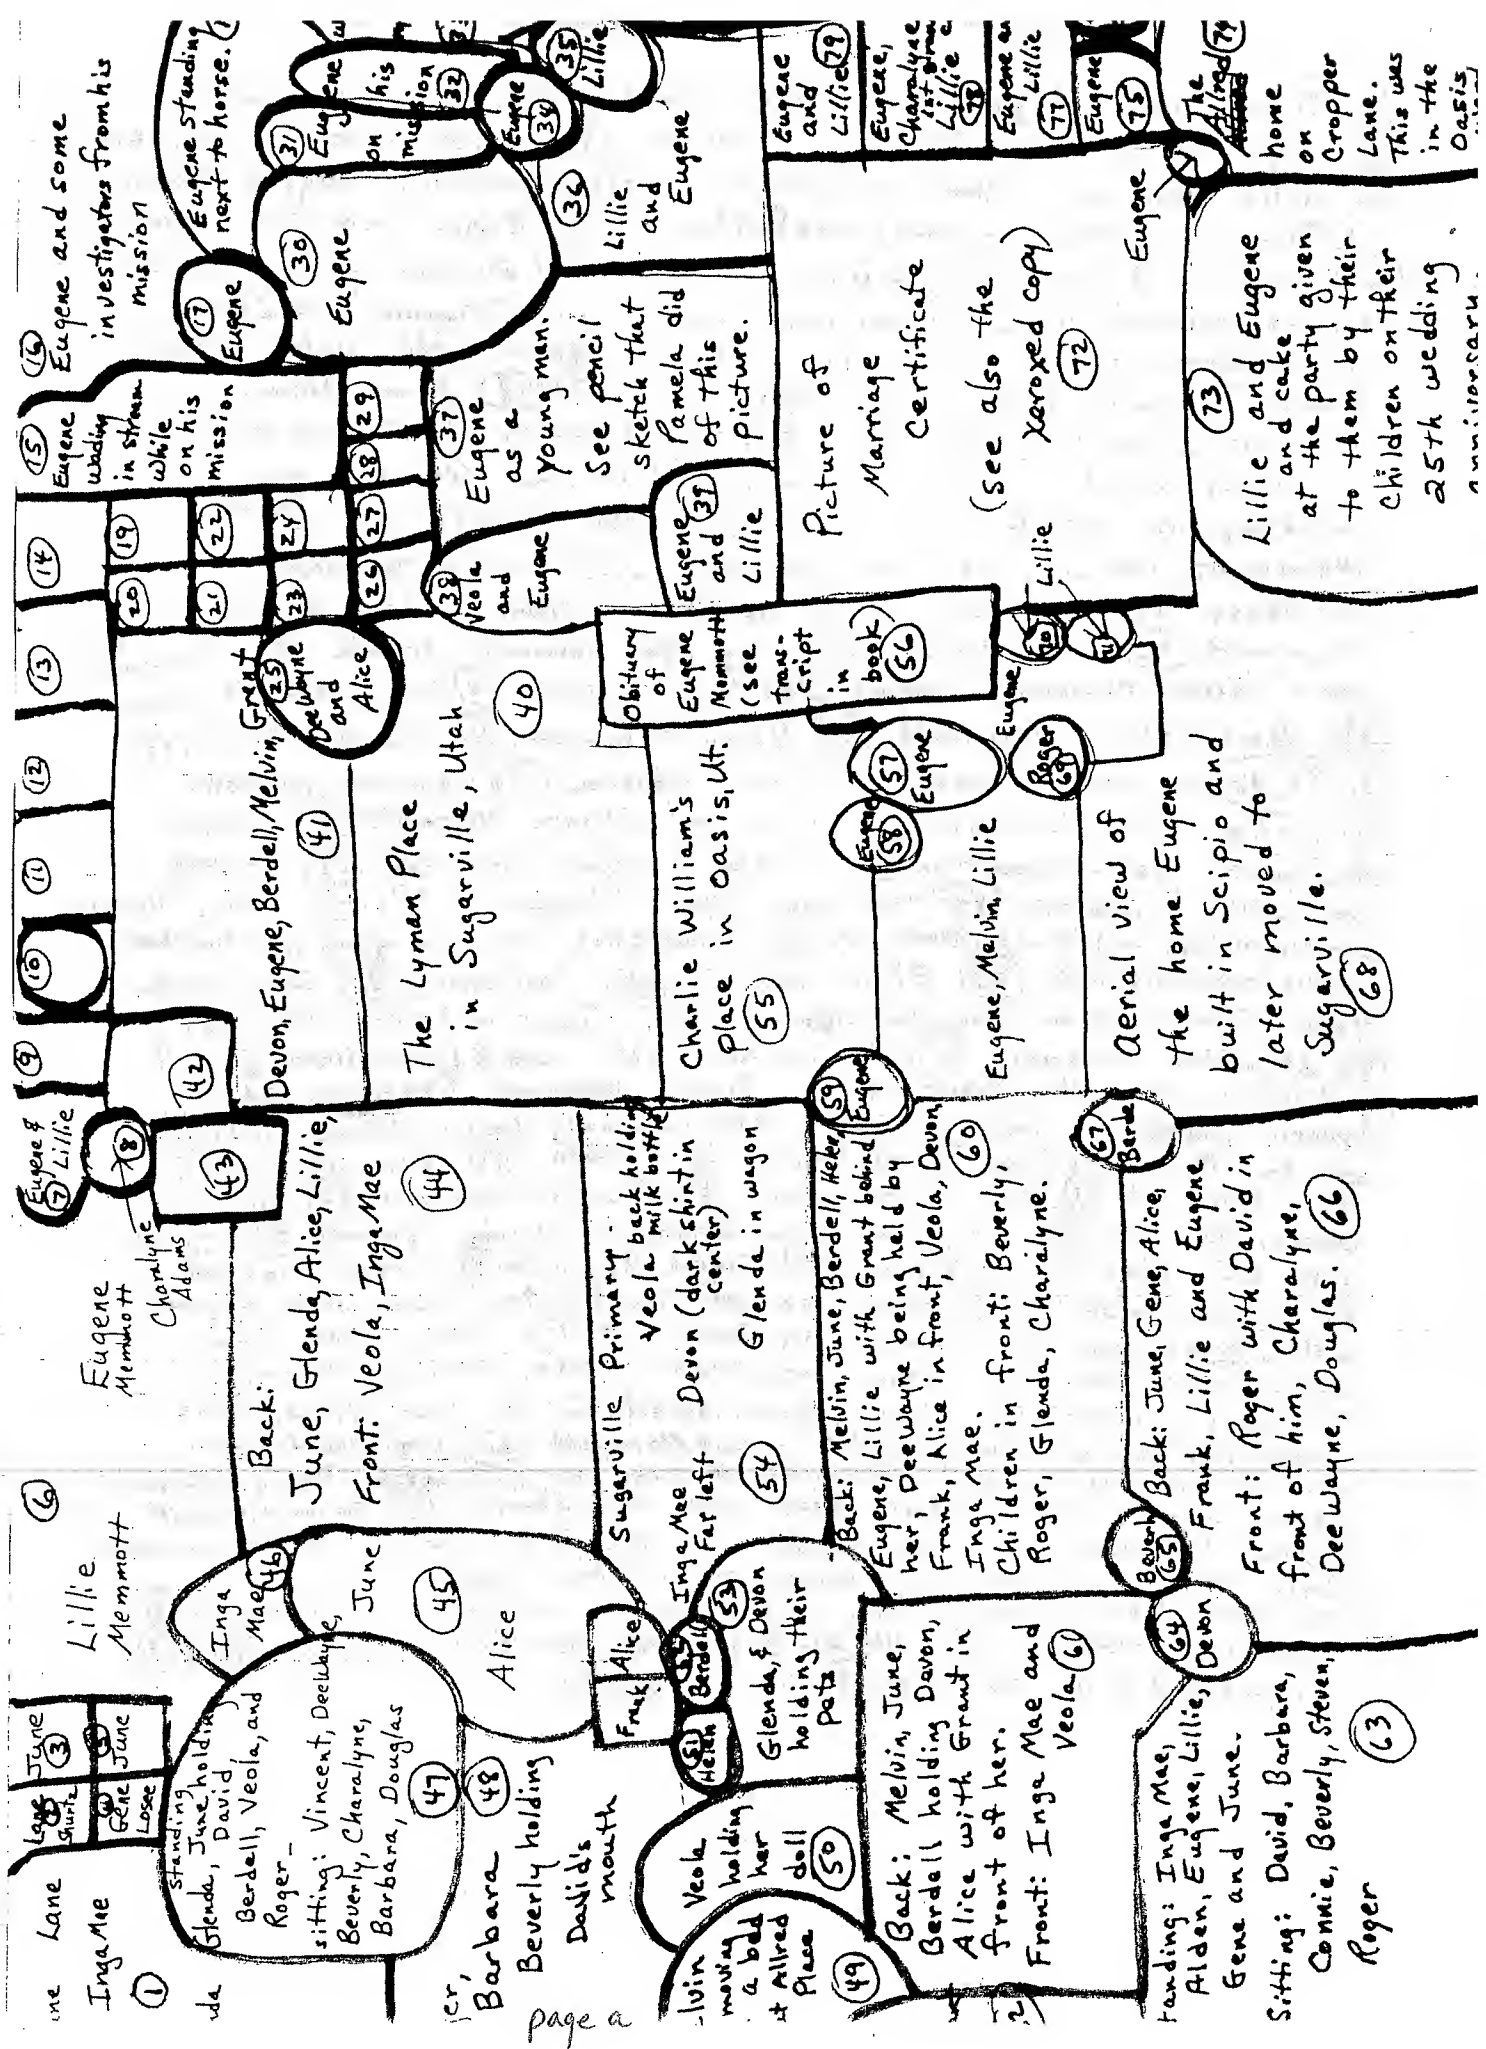 ne Lane
Inga Mae
1
Lane
Shurtz
June
3
Gene
Losee
June
6
Lillie
Memmott
Eugene
Memmott
Charalyne
Adams
Eugene &
7 Lillie
8
9
10
11
12
13
14
15
Eugene
wading
in stream
while
on his
mission
16
Eugene and some
investigators from his
mission
17
Eugene
Eugene standing
next to horse.
19
20
21
22
23
24
25
DeeWayne
and
Alice
26
27
28
29
30
Eugene
31
Eugene
on his
mission
his
mission
32
Eugene
34
35
Lillie
36
Lillie
and
Eugene
37
Eugene
as a
young man.
See pencil
sketch that
Pamela did
of this
picture.
38
Veola
and
Eugene
Eugene 39
and
Lillie
The Lyman Place
in Sugarville, Utah
40
Devon, Eugene, Berdell, Melvin, Grant
41
42
43
Back:
June, Glenda, Alice, Lillie,
Front: Veola, Inga Mae
44
45
Alice
June
Inga
Mae 46
standing
Glenda, June holding
David,
Berdell, Veola, and
Roger-
sitting: Vincent, DeeWayne,
Beverly, Charalyne,
Barbara, Douglas
47
uda
48
er,
Barbara
Beverly holding
David's
mouth
page a
lvin
moving
a bed
at Allred
Place
49
Veola
holding
her
doll
50
Frank
Alice
51
Helen
Berdell
53
Glenda, & Devon
holding their
pets
Sugarville Primary.
Veola back holding
milk bottle
Inga Mae
Far left
Devon (dark shirt in
center)
Glenda in wagon
54
Charlie William's
place in Oasis, Ut.
55
Obituary
of
Eugene
Memmott
(see
trans-
cript
in
book)
56
57
Eugene
Eugene
58
59
Eugene
Back: Melvin, June, Berdell, Helen,
Eugene, Lillie with Grant behind
her, DeeWayne being held by
Frank, Alice in front, Veola, Devon,
Inga Mae.
Children in front: Beverly,
Roger, Glenda, Charalyne.
60
Back: Melvin, June,
Berdell holding Devon,
Alice with Grant in
front of her.
Front: Inga Mae and
Veola 61
Eugene, Melvin, Lillie
tanding: Inga Mae,
Alden, Eugene, Lillie,
Gene and June.
Sitting: David, Barbara,
Connie, Beverly, Steven,
Roger
63
64
Devon
Beverly
65
Back: June, Gene, Alice,
Frank, Lillie and Eugene
Front: Roger with David in
front of him, Charalyne,
DeeWayne, Douglas.
66
67
Berdell
Aerial view of
the home Eugene
built in Scipio and
later moved to
Sugarville.
68
Roger
69
Eugene
70
Lillie
71
Picture of
Marriage
Certificate
(see also the
xeroxed copy)
72
73
Lillie and Eugene
at and cake
at the party given
to them by their
children on their
25th wedding
anniversary.
Eugene
The
Allred 74
home
on
Cropper
Lane.
This was
in the
Oasis
Eugene
75
Eugene an
Lillie
77
Eugene,
Charalyne
Lillie
78
Eugene
and
Lillie 79